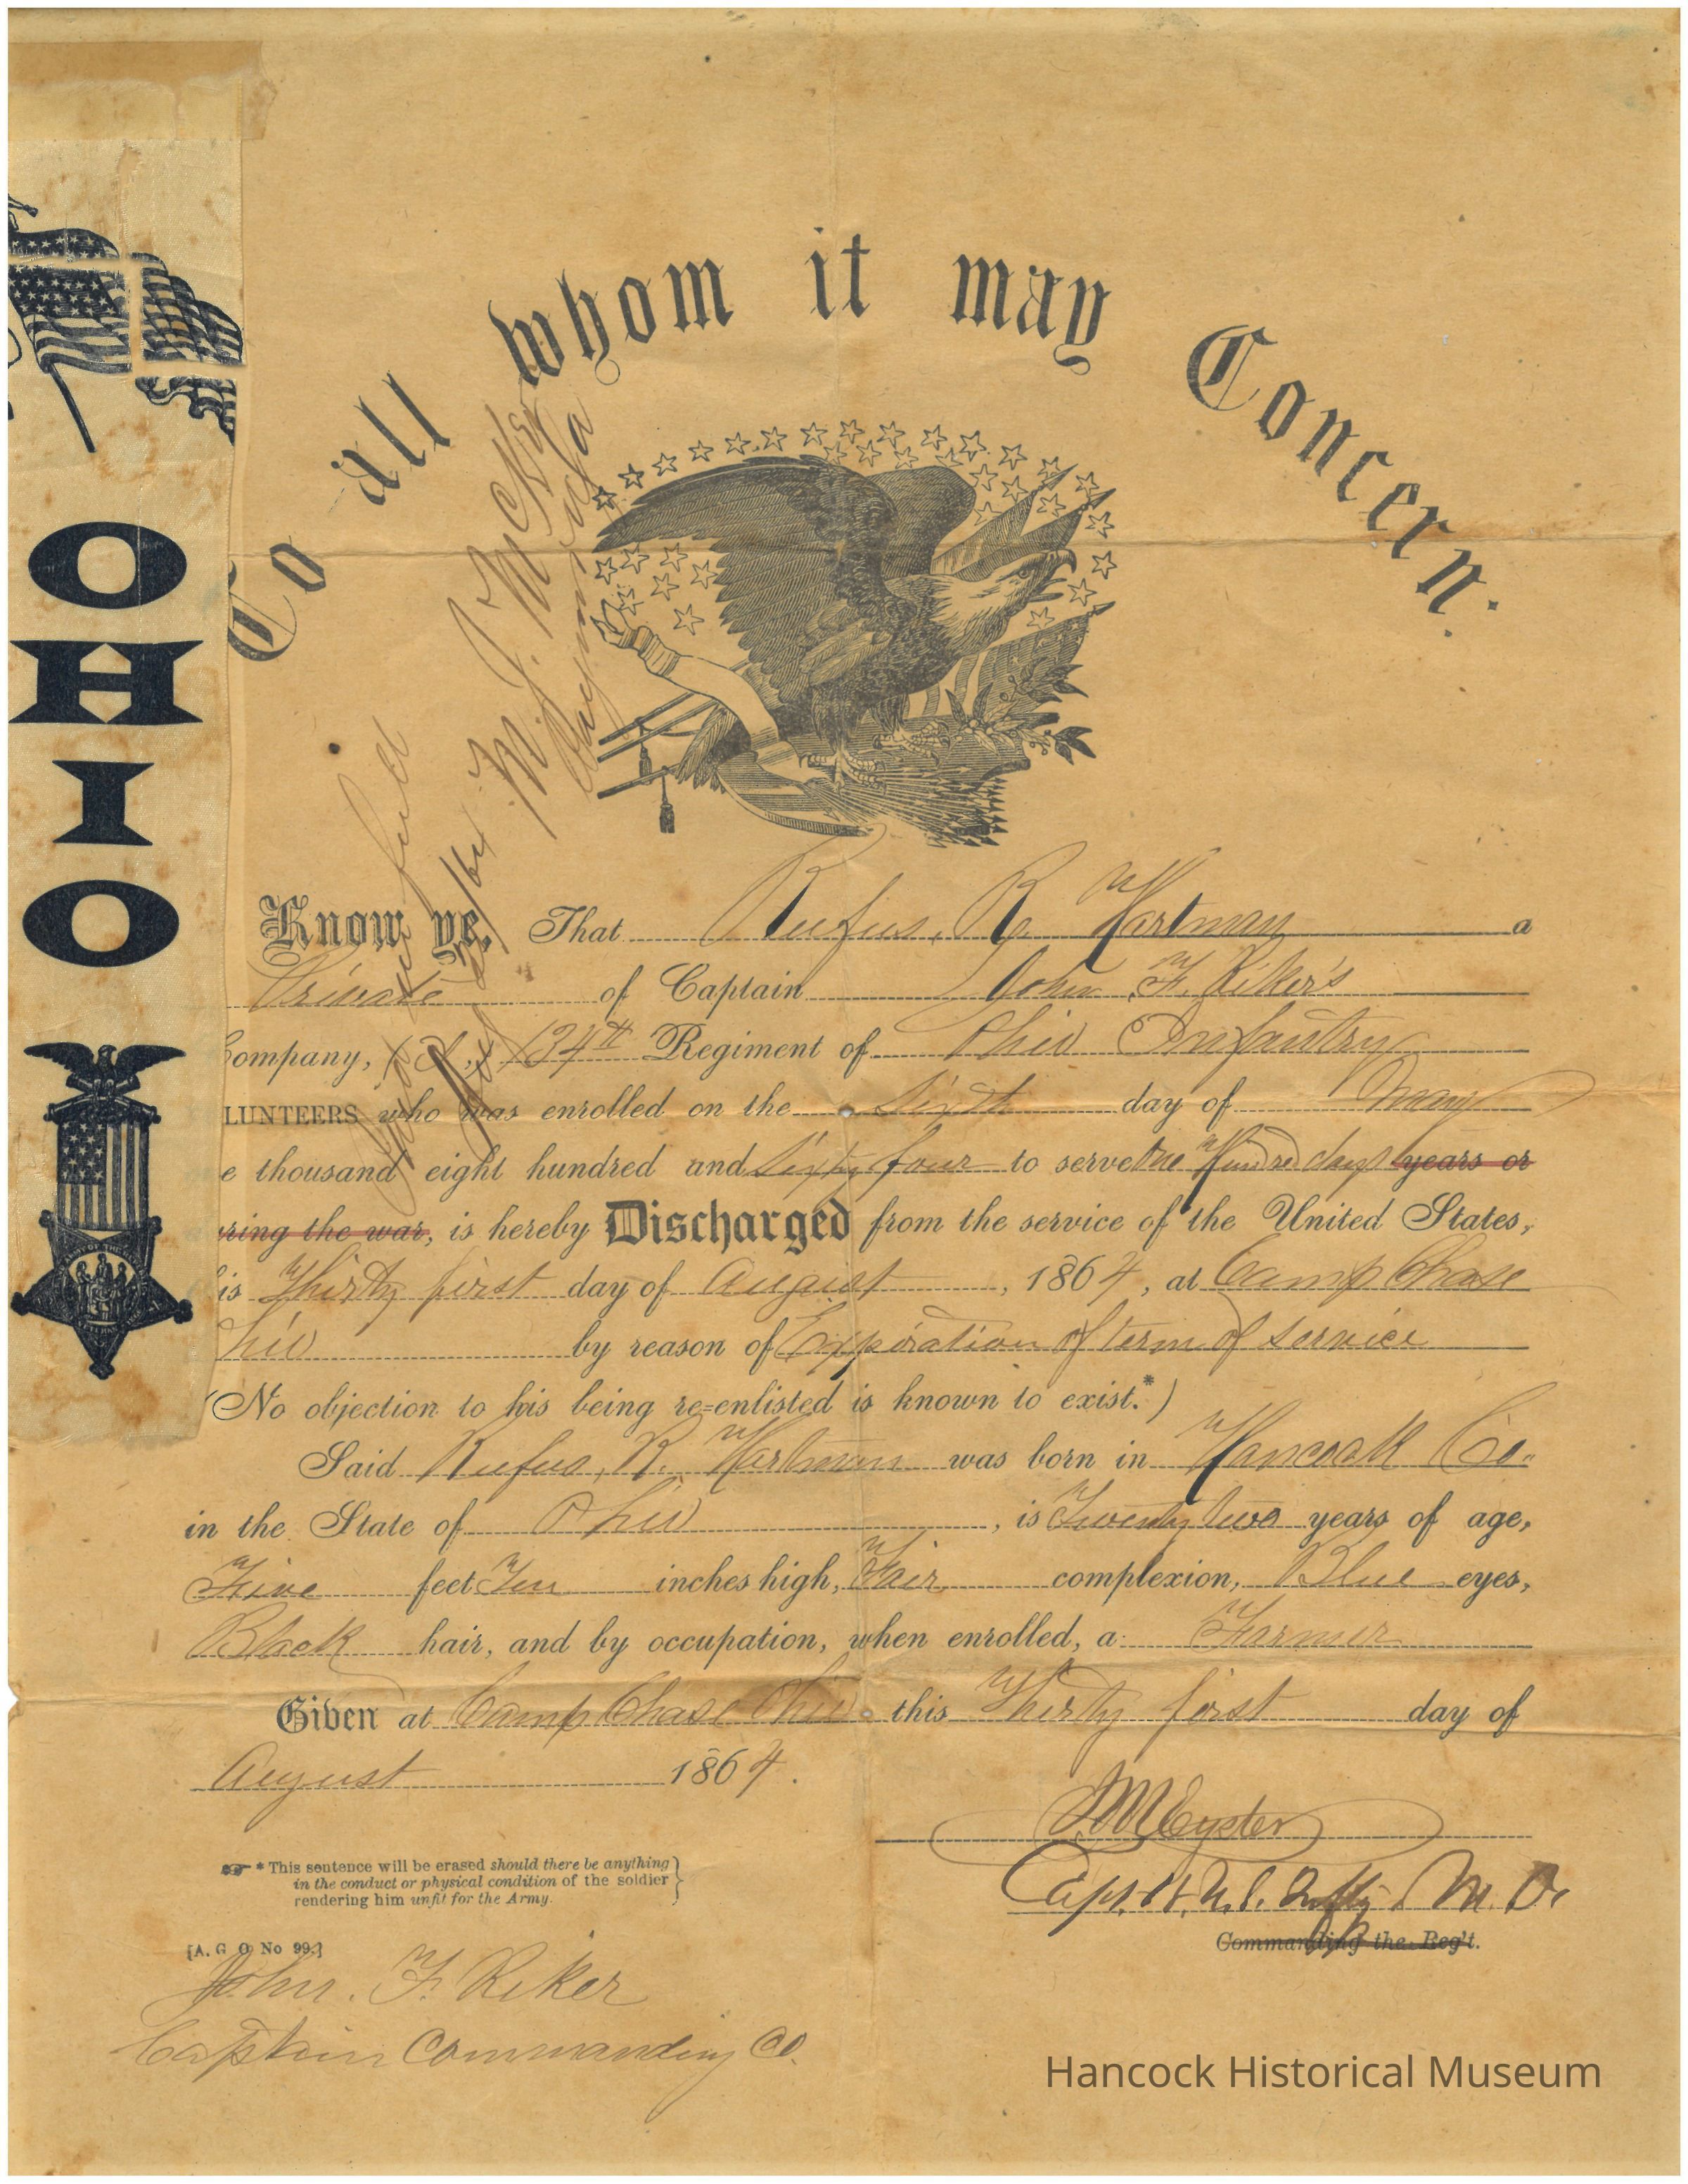 To all whom it may Concern.
OHIO
Paid in full
M. J. McKe
Paymr U.S.A
Know ye, That Rufus, R. Hartman a
Private of Captain John F. Riker's
Company, ( ), 134th Regiment of Ohio Infantry
LUNTEERS who was enrolled on the Sixth day of May
e thousand eight hundred and Sixty four to serve One Hundred days years or
uring the war, is hereby Discharged from the service of the United States,
is Thirty first day of August, 1864, at Camp Chase
hio by reason of Expiration of term of service
(No objection to his being re-enlisted is known to exist.*)
Said Rufus, R. Hartman was born in Hancock Co.
in the State of Ohio, is Twenty two years of age,
Five feet Ten inches high, Fair complexion, Blue eyes,
Black hair, and by occupation, when enrolled, a Farmer
Given at Camp Chase Ohio this Thirty first day of
August 1864.
Eyster
Capt. U.S. Infty M.O.
Commanding the Reg't.
* This sentence will be erased should there be anything
in the conduct or physical condition of the soldier
rendering him unfit for the Army.
[A. G. O. No 99.]
John. F. Riker
Captain Commanding Co.
Hancock Historical Museum